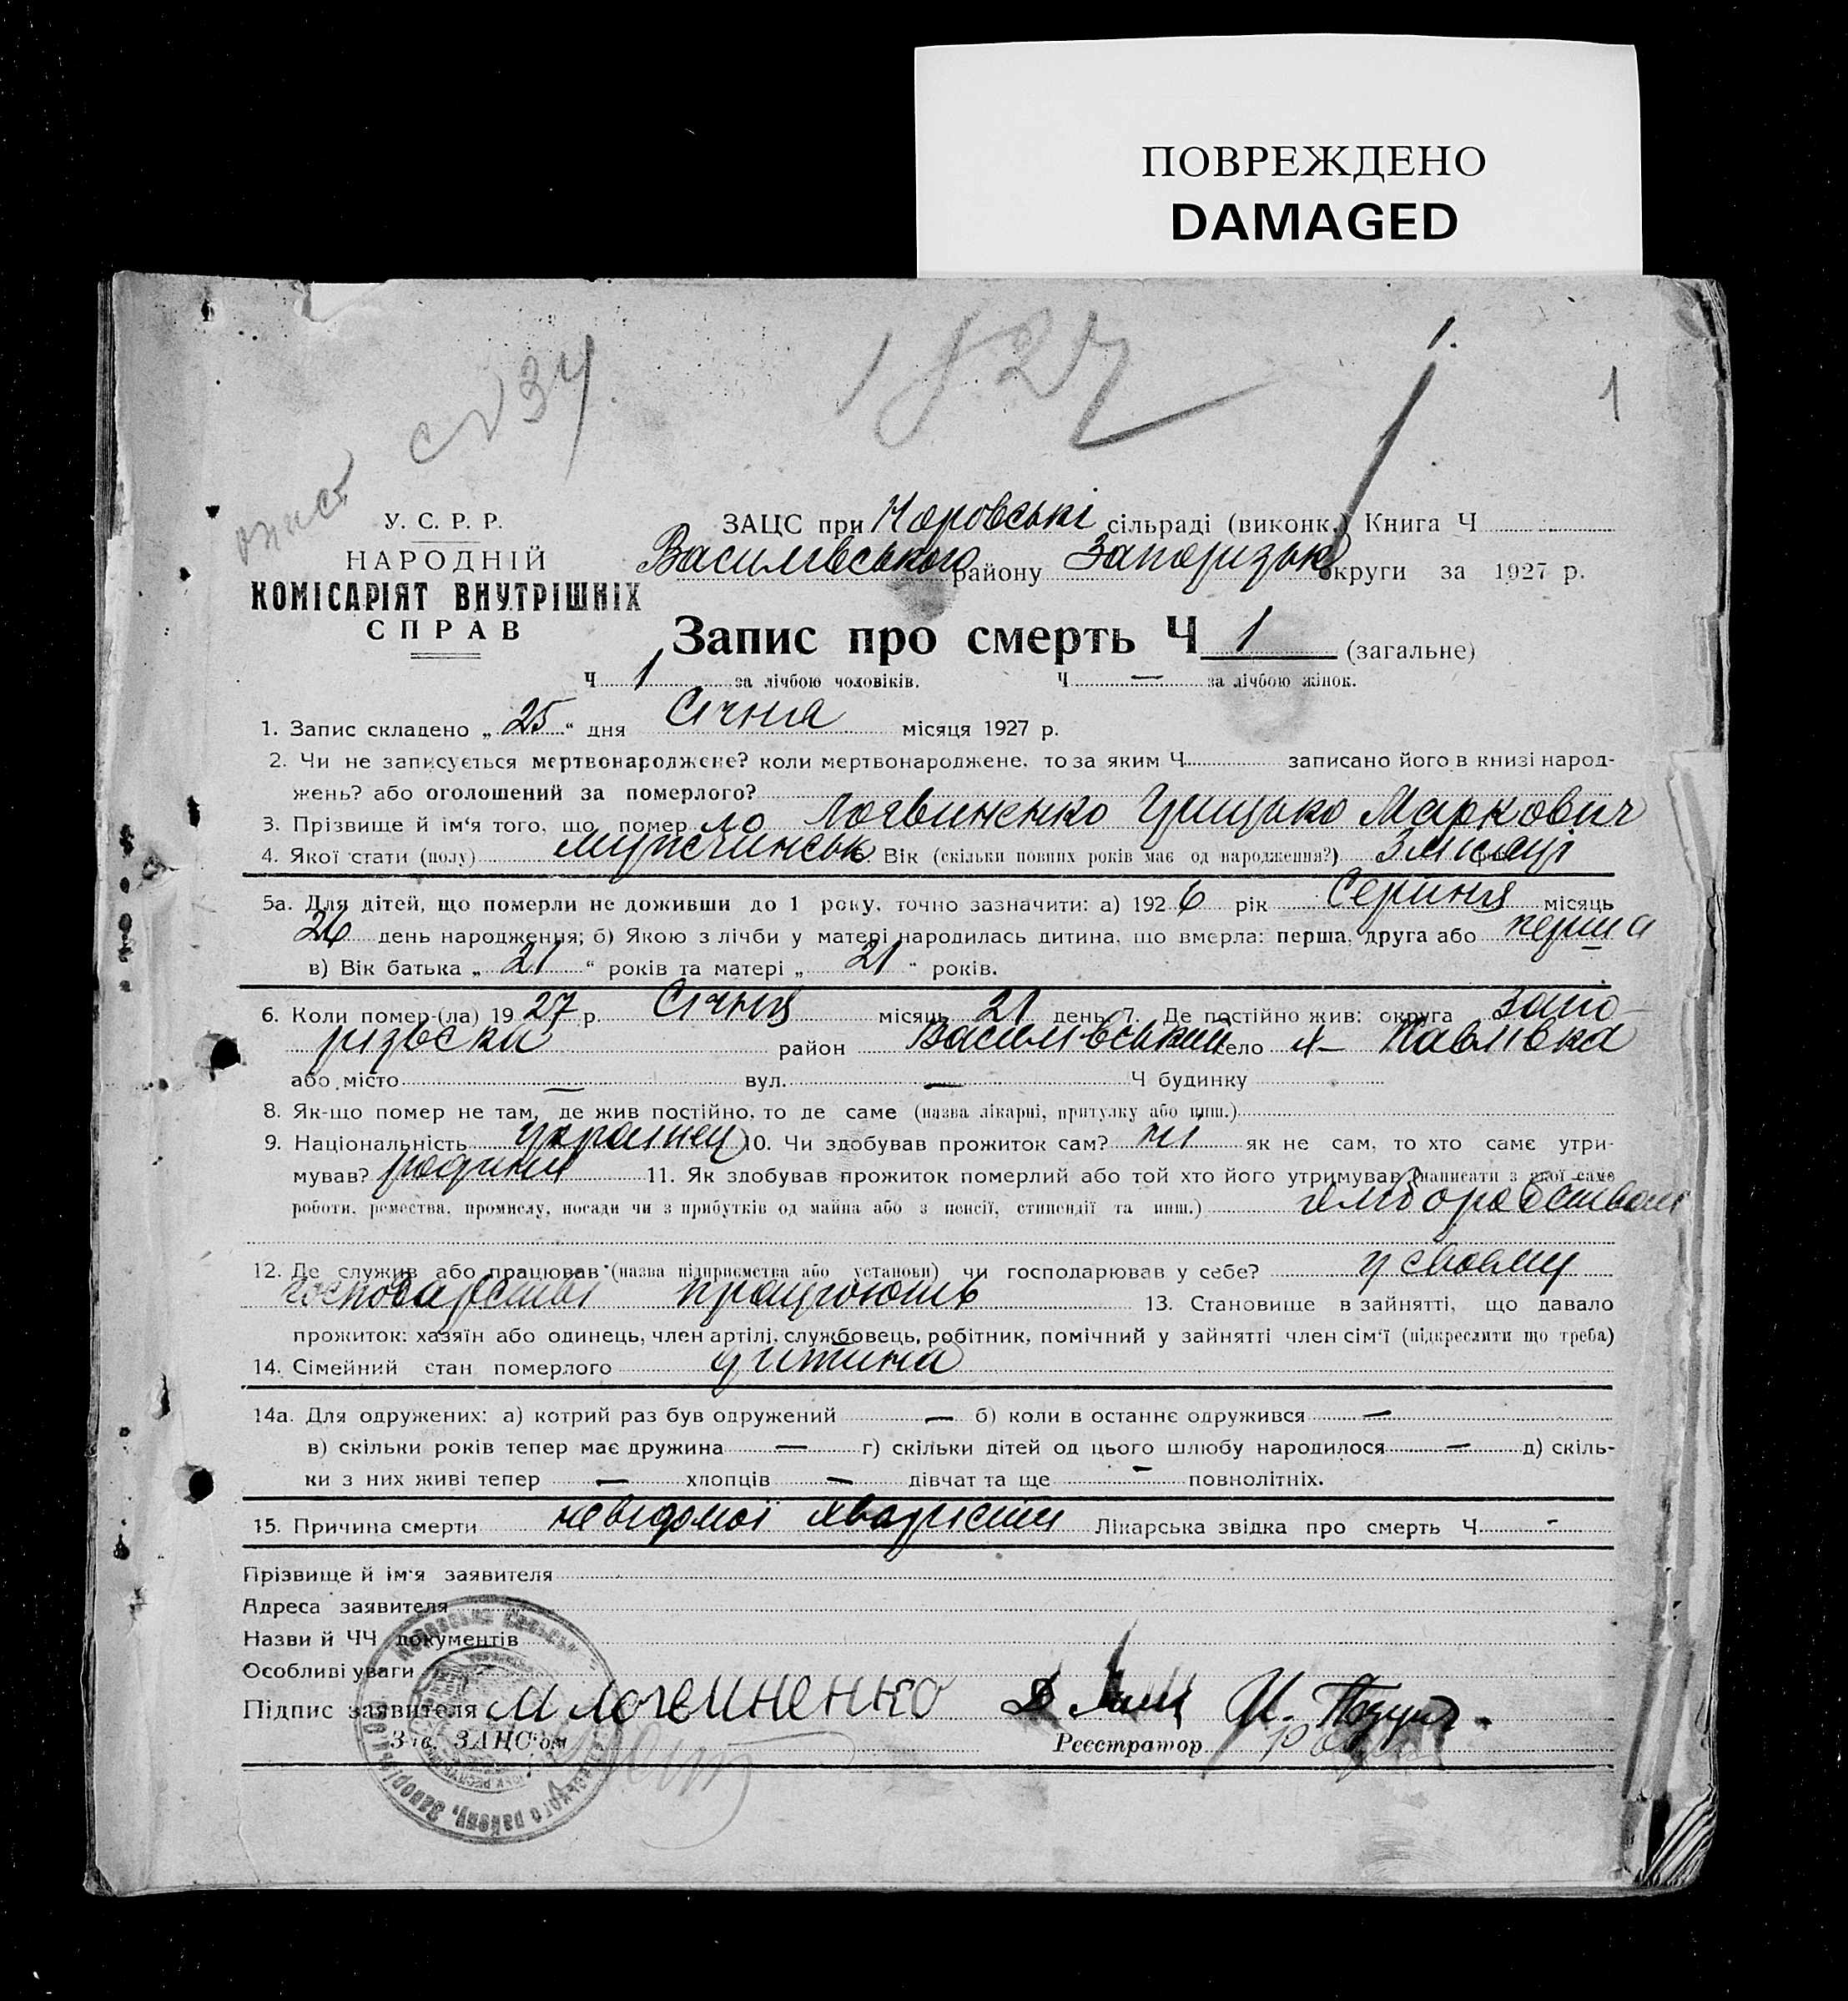 ПОВРЕЖДЕНО
DAMAGED
1827
1.
1
опист
34
У. С. Р. Р.
НАРОДНІЙ
КОМІСАРІЯТ ВНУТРІШНІХ
СПРАВ
ЗАЦС при сільраді (виконк.) Книга Ч
Василівського району Запорізьк округи за 1927 р.
Запис про смерть Ч 1 (загальне)
Ч 1 за лічбою чоловіків. Ч — за лічбою жінок.
1. Запис складено „ 25 “ дня Січня місяця 1927 р.
2. Чи не записується мертвонароджене? коли мертвонароджене, то за яким Ч. записано його в книзі народ-
жень? або оголошений за померлого?
3. Прізвище й ім‘я того, що помер ло Логвиненко Грицько Маркович
4. Якої стати (полу) мужчинськ 5. Вік (скільки повних років має од народження?) 5 місяці
5а. Для дітей, що померли не доживши до 1 року, точно зазначити: а) 192 6 рік Серпня місяць
26 день народження; б) Якою з лічби у матері народилась дитина, що вмерла: перша, друга або перша
в) Вік батька „ 21 “ років та матері „ 21 “ років.
6. Коли помер-(ла) 19 27 р. Січня місяць 21 день 7. Де постійно жив: округа Запо-
різьска район Василівський село х- Павлівка
або місто — вул. — Ч будинку
8. Як-що помер не там, де жив постійно, то де саме (назва лікарні, притулку або инш.)
9. Національність українец 10. Чи здобував прожиток сам? ні як не сам, то хто саме утри-
мував? родини 11. Як здобував прожиток померлий або той хто його утримував (написати з якої саме
роботи, ремества, промислу, посади чи з прибутків од майна або з пенсії, стипендії та инш.)
12. Де служив або працював (назва підприємства або установи) чи господарював у себе? у своєму
господарстві працюють 13. Становище в зайнятті, що давало
прожиток: хазяїн або одинець, член артілі, службовець, робітник, помічний у зайнятті член сім‘ї (підкреслити що треба)
14. Сімейний стан померлого дитина
14а. Для одружених: а) котрий раз був одружений — б) коли в останнє одружився —
в) скільки років тепер має дружина — г) скільки дітей од цього шлюбу народилося — д) скіль-
ки з них живі тепер — хлопців — дівчат та ще - повнолітніх.
15. Причина смерти невідомої хварісти Лікарська звідка про смерть Ч -
Прізвище й ім‘я заявителя
Адреса заявителя
Назви й ЧЧ документів
Особливі уваги
Підпис заявителя М Логвиненко
Зав. ЗАЦС‘ом Реєстратор